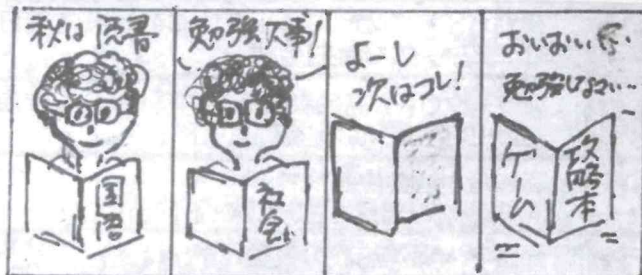 秋は読書
国語
勉強大事!
社会
よーし
次はコレ!
おいおい
勉強しなさい…
ゲーム
攻略本